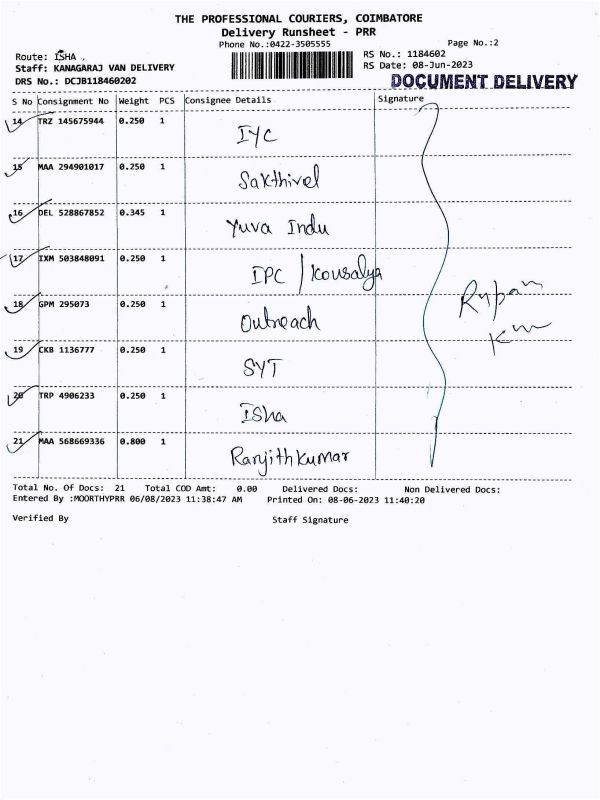 THE PROFESSIONAL COURIERS, COIMBATORE
Delivery Runsheet - PRR
Phone No.:0422-3505555
Page No.:2
Route: ISHA
RS No.: 1184602
Staff: KANAGARAJ VAN DELIVERY
RS Date: 08-Jun-2023
DRS No.: DCJB118460202
DOCUMENT DELIVERY
S No Consignment No Weight PCS Consignee Details Signature
14 TRZ 145675944 0.250 1 IYC
15 MAA 294901017 0.250 1 Sakthivel
16 DEL 528867852 0.345 1 Yuva Indu
17 IXM 503848091 0.250 1 IPC / Kousalya
18 GPM 295073 0.250 1 Outreach
19 CKB 1136777 0.250 1 SYT
20 TRP 4906233 0.250 1 Isha
21 MAA 568669336 0.800 1 Ranjithkumar
Total No. Of Docs: 21 Total COD Amt: 0.00 Delivered Docs: Non Delivered Docs:
Entered By :MOORTHYPRR 06/08/2023 11:38:47 AM Printed On: 08-06-2023 11:40:20
Verified By Staff Signature